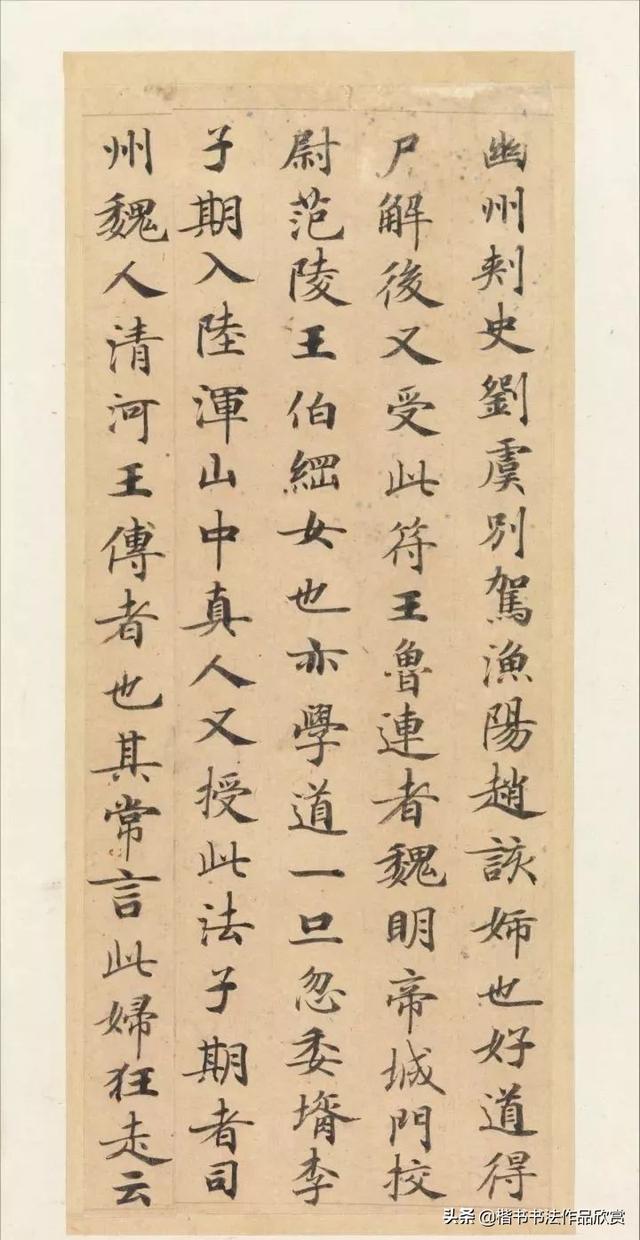 幽州刾史劉虞別駕漁陽趙該姉也好道得
尸解後又受此符王魯連者魏明帝城門挍
尉范陵王伯綱女也亦學道一旦忽委壻李
子期入陸渾山中真人又授此法子期者司
州魏人清河王傅者也其常言此婦狂走云
头条 @楷书书法作品欣赏